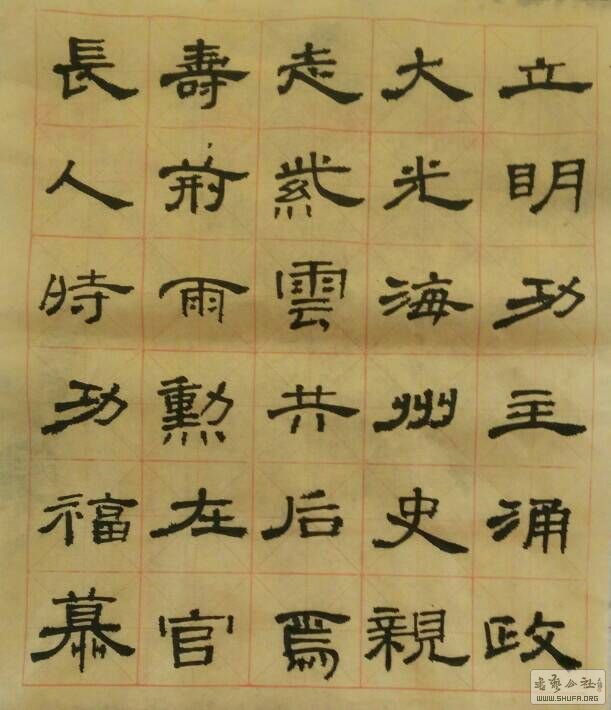 立明功主涌政
大光海州史親
走雲共后焉
壽荊雨勳在官
長人時功福慕
书艺公社
WWW.SHUFA.ORG